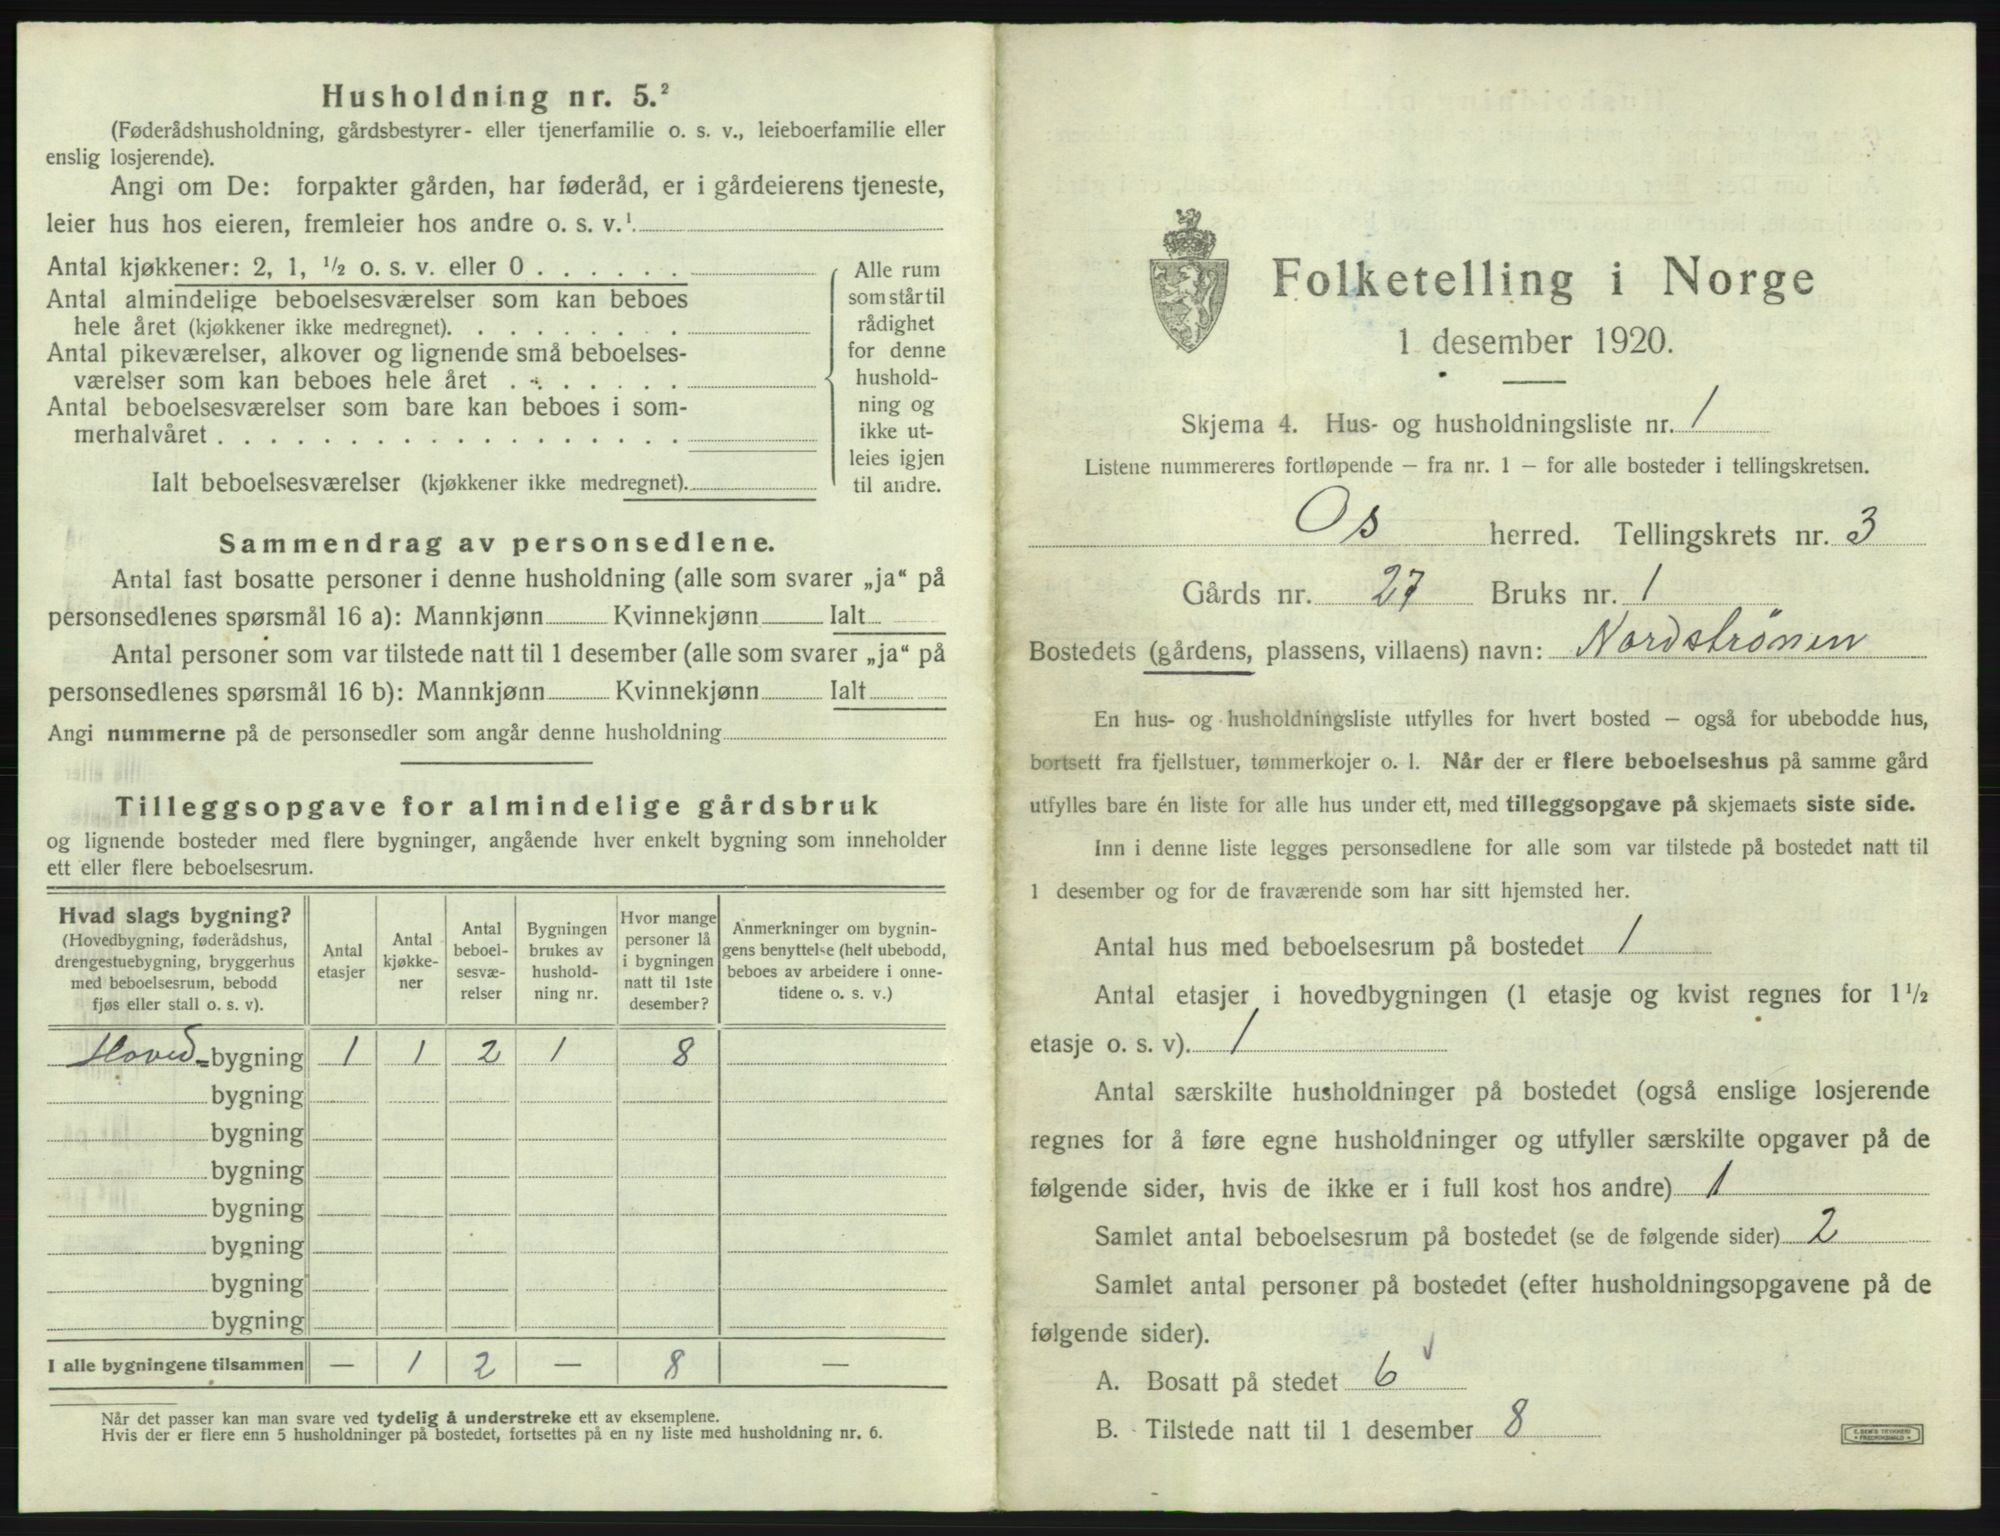 Husholdning nr. 5.²
(Føderådshusholdning, gårdsbestyrer- eller tjenerfamilie o. s. v., leieboerfamilie eller
enslig losjerende).
Angi om De: forpakter gården, har føderåd, er i gårdeierens tjeneste,
leier hus hos eieren, fremleier hos andre o. s. v.¹
Antal kjøkkener: 2, 1, ½ o. s. v. eller 0
Antal almindelige beboelsesværelser som kan beboes
hele året (kjøkkener ikke medregnet).
Antal pikeværelser, alkover og lignende små beboelses-
værelser som kan beboes hele året
Antal beboelsesværelser som bare kan beboes i som-
merhalvåret
Ialt beboelsesværelser (kjøkkener ikke medregnet).
Alle rum
som står til
rådighet
for denne
hushold-
ning og
ikke ut-
leies igjen
til andre.
Sammendrag av personsedlene.
Antal fast bosatte personer i denne husholdning (alle som svarer „ja“ på
personsedlenes spørsmål 16 a): Mannkjønn Kvinnekjønn Ialt
Antal personer som var tilstede natt til 1 desember (alle som svarer „ja“ på
personsedlenes spørsmål 16 b): Mannkjønn Kvinnekjønn Ialt
Angi nummerne på de personsedler som angår denne husholdning
Tilleggsopgave for almindelige gårdsbruk
og lignende bosteder med flere bygninger, angående hver enkelt bygning som inneholder
ett eller flere beboelsesrum.
Hvad slags bygning?
(Hovedbygning, føderådshus,
drengestuebygning, bryggerhus
med beboelsesrum, bebodd
fjøs eller stall o. s. v).
Antal
etasjer
Antal
kjøkke-
ner
Antal
beboel-
sesvæ-
relser
Bygningen
brukes av
hushold-
ning nr.
Hvor mange
personer lå
i bygningen
natt til 1ste
desember?
Anmerkninger om bygnin-
gens benyttelse (helt ubebodd,
beboes av arbeidere i onne-
tidene o. s. v.)
Hoved= bygning 1 1 2 1 8
bygning
bygning
bygning
bygning
bygning
bygning
bygning
I alle bygningene tilsammen — 1 2 — 8 —
Når det passer kan man svare ved tydelig å understreke ett av eksemplene.
Hvis der er flere enn 5 husholdninger på bostedet, fortsettes på en ny liste med husholdning nr. 6.
Folketelling i Norge
1 desember 1920.
Skjema 4. Hus- og husholdningsliste nr. 1
Listene nummereres fortløpende — fra nr. 1 — for alle bosteder i tellingskretsen.
Os herred. Tellingskrets nr. 3
Gårds nr. 27 Bruks nr. 1
Bostedets (gårdens, plassens, villaens) navn: Nordströnen
En hus- og husholdningsliste utfylles for hvert bosted — også for ubebodde hus,
bortsett fra fjellstuer, tømmerkojer o. l. Når der er flere beboelseshus på samme gård
utfylles bare én liste for alle hus under ett, med tilleggsopgave på skjemaets siste side.
Inn i denne liste legges personsedlene for alle som var tilstede på bostedet natt til
1 desember og for de fraværende som har sitt hjemsted her.
Antal hus med beboelsesrum på bostedet 1
Antal etasjer i hovedbygningen (1 etasje og kvist regnes for 1½
etasje o. s. v). 1
Antal særskilte husholdninger på bostedet (også enslige losjerende
regnes for å føre egne husholdninger og utfyller særskilte opgaver på de
følgende sider, hvis de ikke er i full kost hos andre) 1
Samlet antal beboelsesrum på bostedet (se de følgende sider) 2
Samlet antal personer på bostedet (efter husholdningsopgavene på de
følgende sider).
A. Bosatt på stedet 6
B. Tilstede natt til 1 desember 8